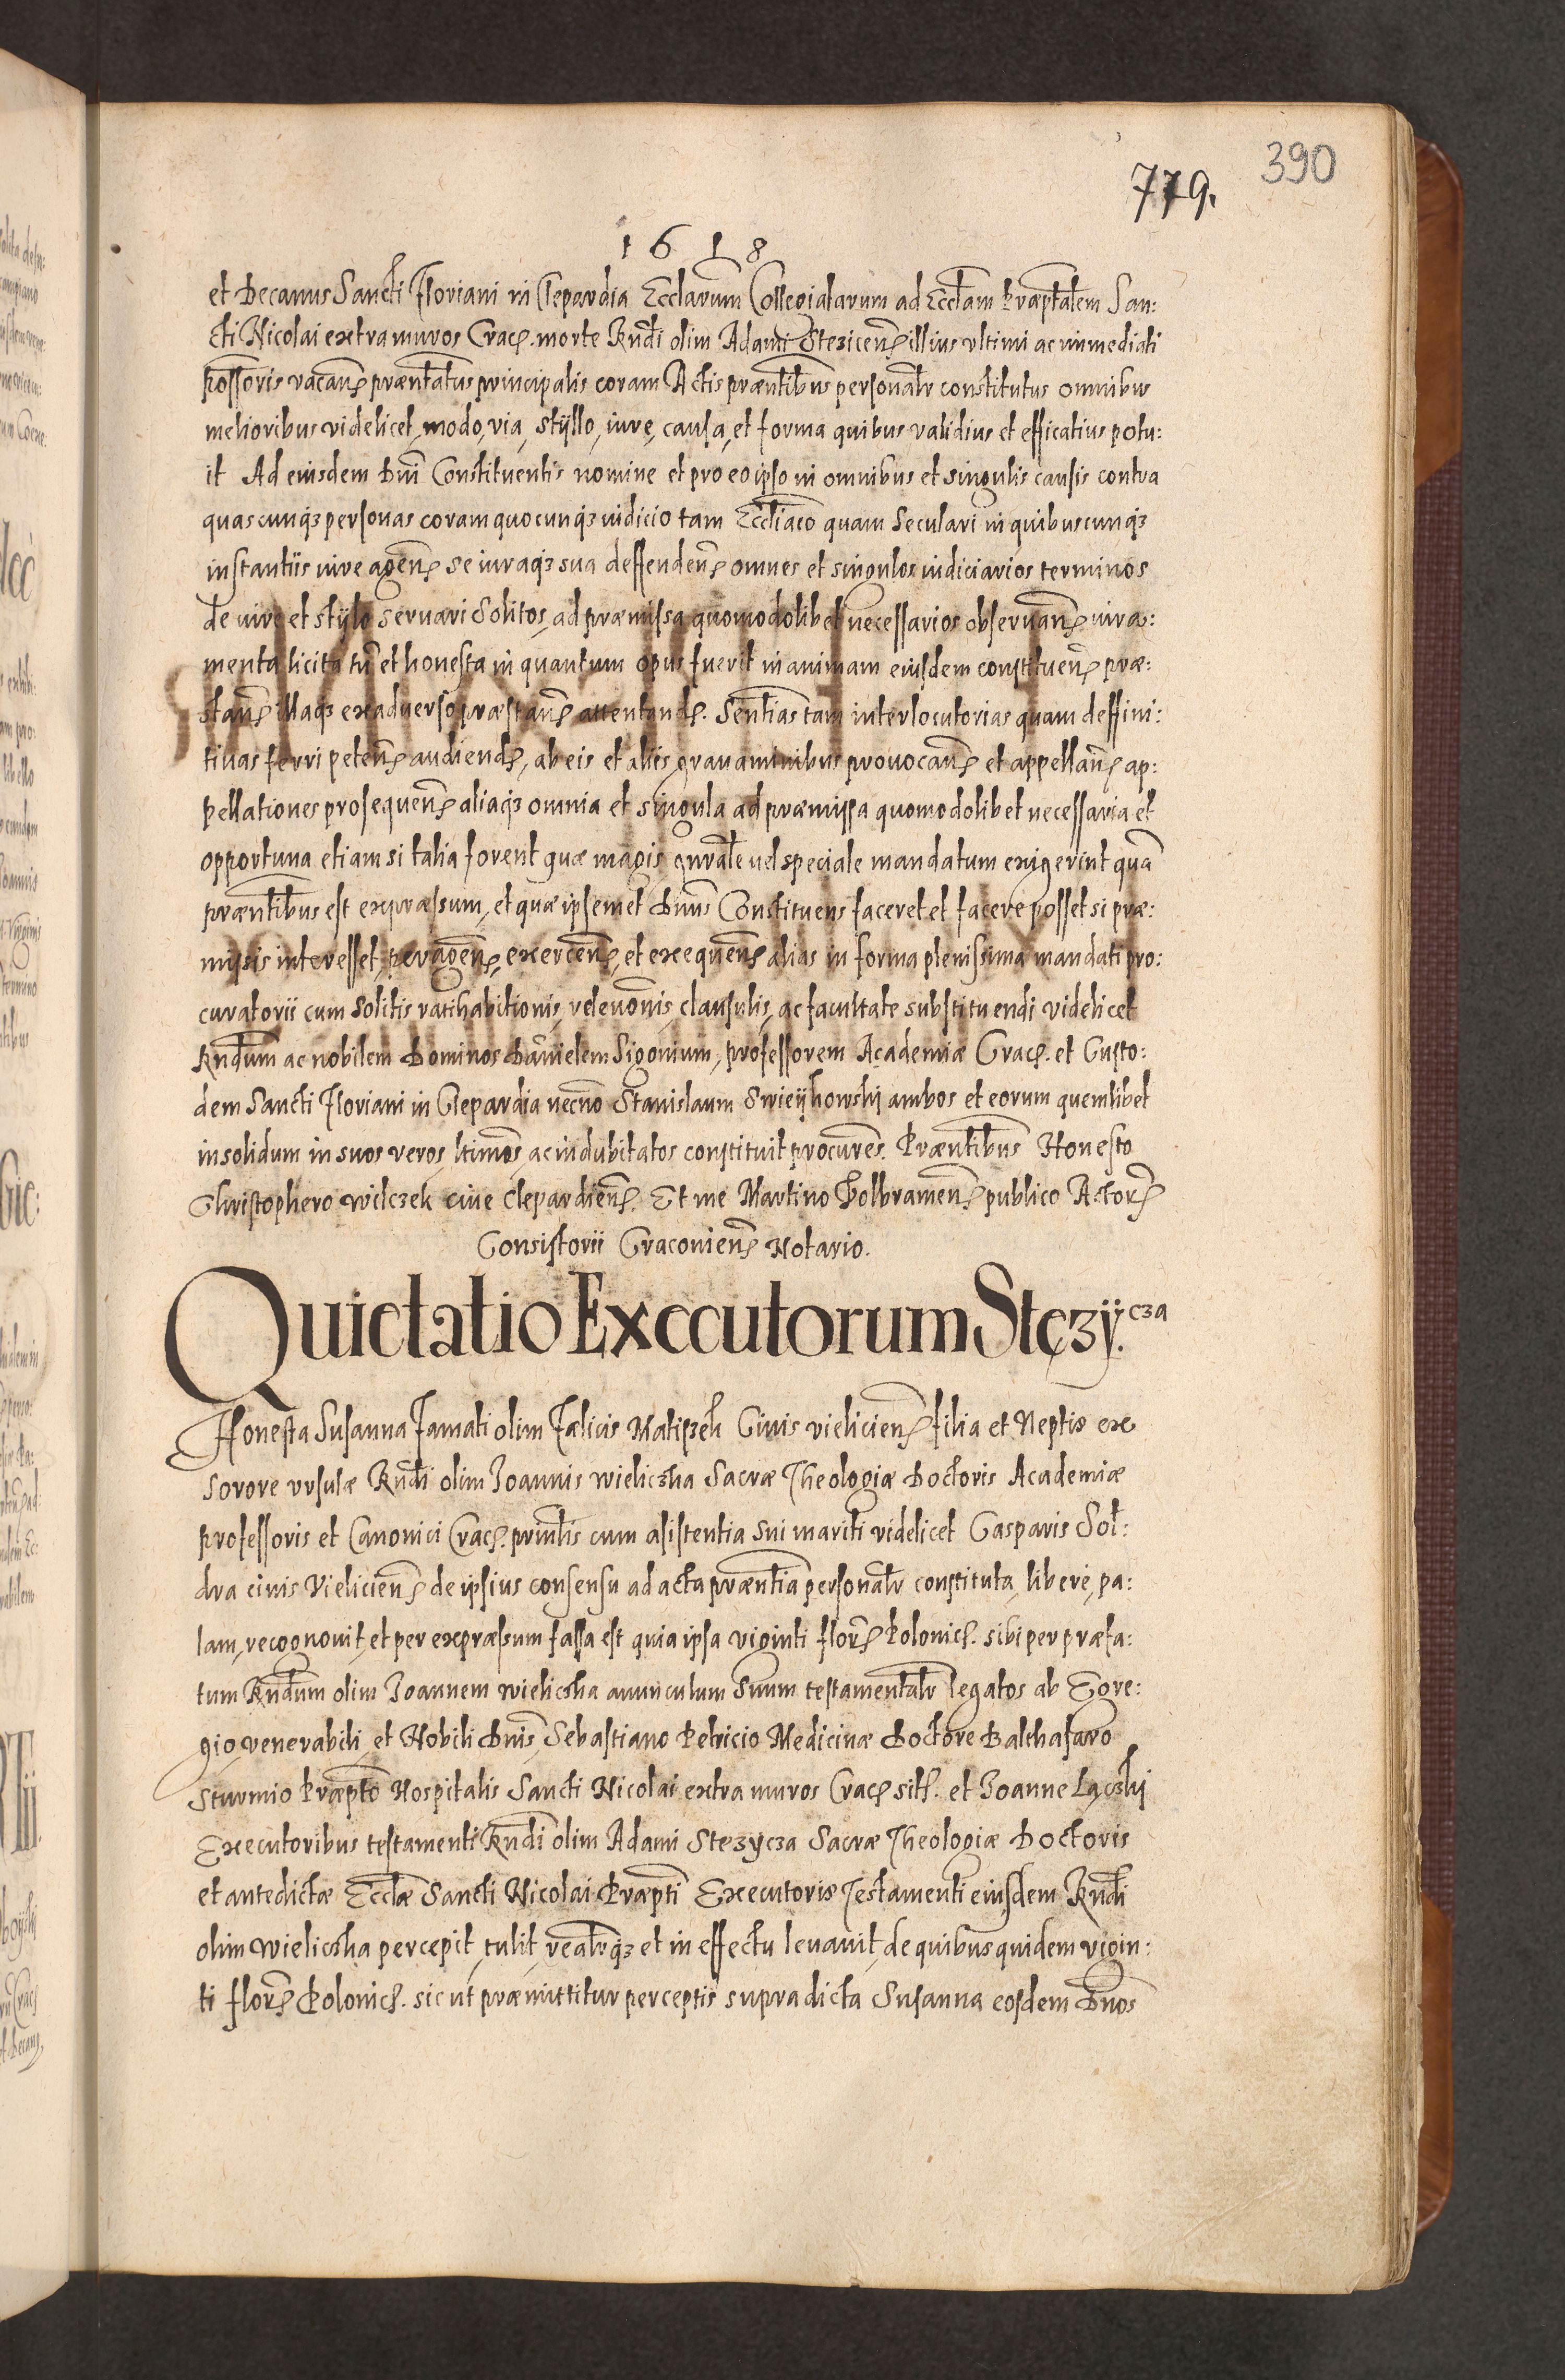 390
779.
1618
et Decanus Sancti Floriani in Clepardia Ecclarum Collegiatarum ad Ecclam Præptalem San:
cti Nicolai extra muros Crac. morte Rndi olim Adami Stezicen illius vltimi ac immediati
possoris vacan præntatus principalis coram Actis præntibus personalr constitutus omnibus
melioribus videlicet, modo, via, styllo, iure, causa, et forma quibus validius et efficatius potu:
it Ad eiusdem Dni Constituentis nomine et pro eo ipso in omnibus et singulis causis contra
quascunq3 personas coram quocunq3 iudicio tam Eccliaco quam Seculari in quibuscunq3
instantiis iure agen se iuraq3 sua deffenden omnes et singulos iudiciarios terminos
de iure et stylo seruari Solitos, ad præmissa quomodolibet necessarios obseruan iura:
menta licita tn et honesta in quantum opus fuerit in animam eiusdem constituen præ:
stan illaq3 ex aduerso præstan attentand. Sentias tam interlocutorias quam deffini:
tiuas ferri peten audiend, ab eis et aliis grauaminibus prouocan et appellan ap:
pellationes prosequen aliaq3 omnia et singula ad præmissa quomodolibet necessaria et
opportuna etiam si talia forent quæ magis gnrale uel speciale mandatum exigerint quã
præntibus est expræssum, et quæ ipsemet Dnus Constituens faceret et facere posset si præ:
missis interesset, peragen, exercen, et exequen alias in forma plenissima mandati pro:
curatorii cum Solitis ratihabitionis, releuonis, clausulis, ac facultate substituendi videlicet
Rndum ac nobilem Dominos Danielem Sigonium, professorem Academiæ Crac. et Custo:
dem Sancti Floriani in Clepardia necno Stanislaum Swieykowsky ambos et eorum quemlibet
insolidum in suos veros, ltimos, ac indubitatos constituit procures. Præntibus Honesto
Christophero Wilczek ciue Clepardien. Et me Martino Wolbramen publico Actor
Consistorii Cracouien Notario.
Quietatio Executorum Stęzÿ.cza
Honesta Susanna Famati olim Fælicis Matiszek Ciuis vielicien filia et Neptis ex
Sorore vrsulæ Rndi olim Joannis Wieliczka Sacræ Theologiæ Doctoris Academiæ
professoris et Canonici Crac. prinlis cum asistentia Sui mariti videlicet Gasparis Sol:
dra ciuis Vielicien de ipsius consensu ad acta præntia personalr constituta, liberè, pa:
lam, recognouit, et per expræssum fassa est quia ipsa viginti flor Polonic. sibi per præfa:
tum Rndum olim Joannem Wieliczka auunculum Suum testamentalr legatos ab Egre:
gio venerabili, et Nobili Dnis, Sebastiano Petricio Medicinæ Doctore Balthasaro
Sturmio Præpto Hospitalis Sancti Nicolai extra muros Crac sit. et Joanne Łączky
Executoribus testamenti Rndi olim Adami Stezycza Sacræ Theologiæ Doctoris
et antedictæ Ecclæ Sancti Nicolai Præpti Executoris Testamenti eiusdem Rndi
olim Wieliczka percepit, tulit, realrq3 et in effectu leuauit, de quibus quidem vigin:
ti flor Polonic. sic ut præmittitur perceptis supradicta Susanna eosdem Dnos